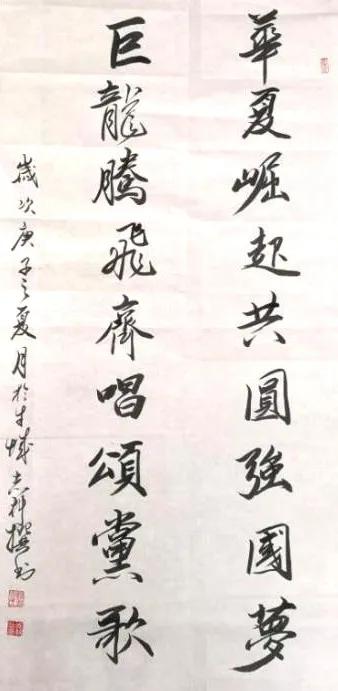 華夏崛起共圓強國夢
巨龍騰飛齊唱頌黨歌
歲次庚子之夏月於